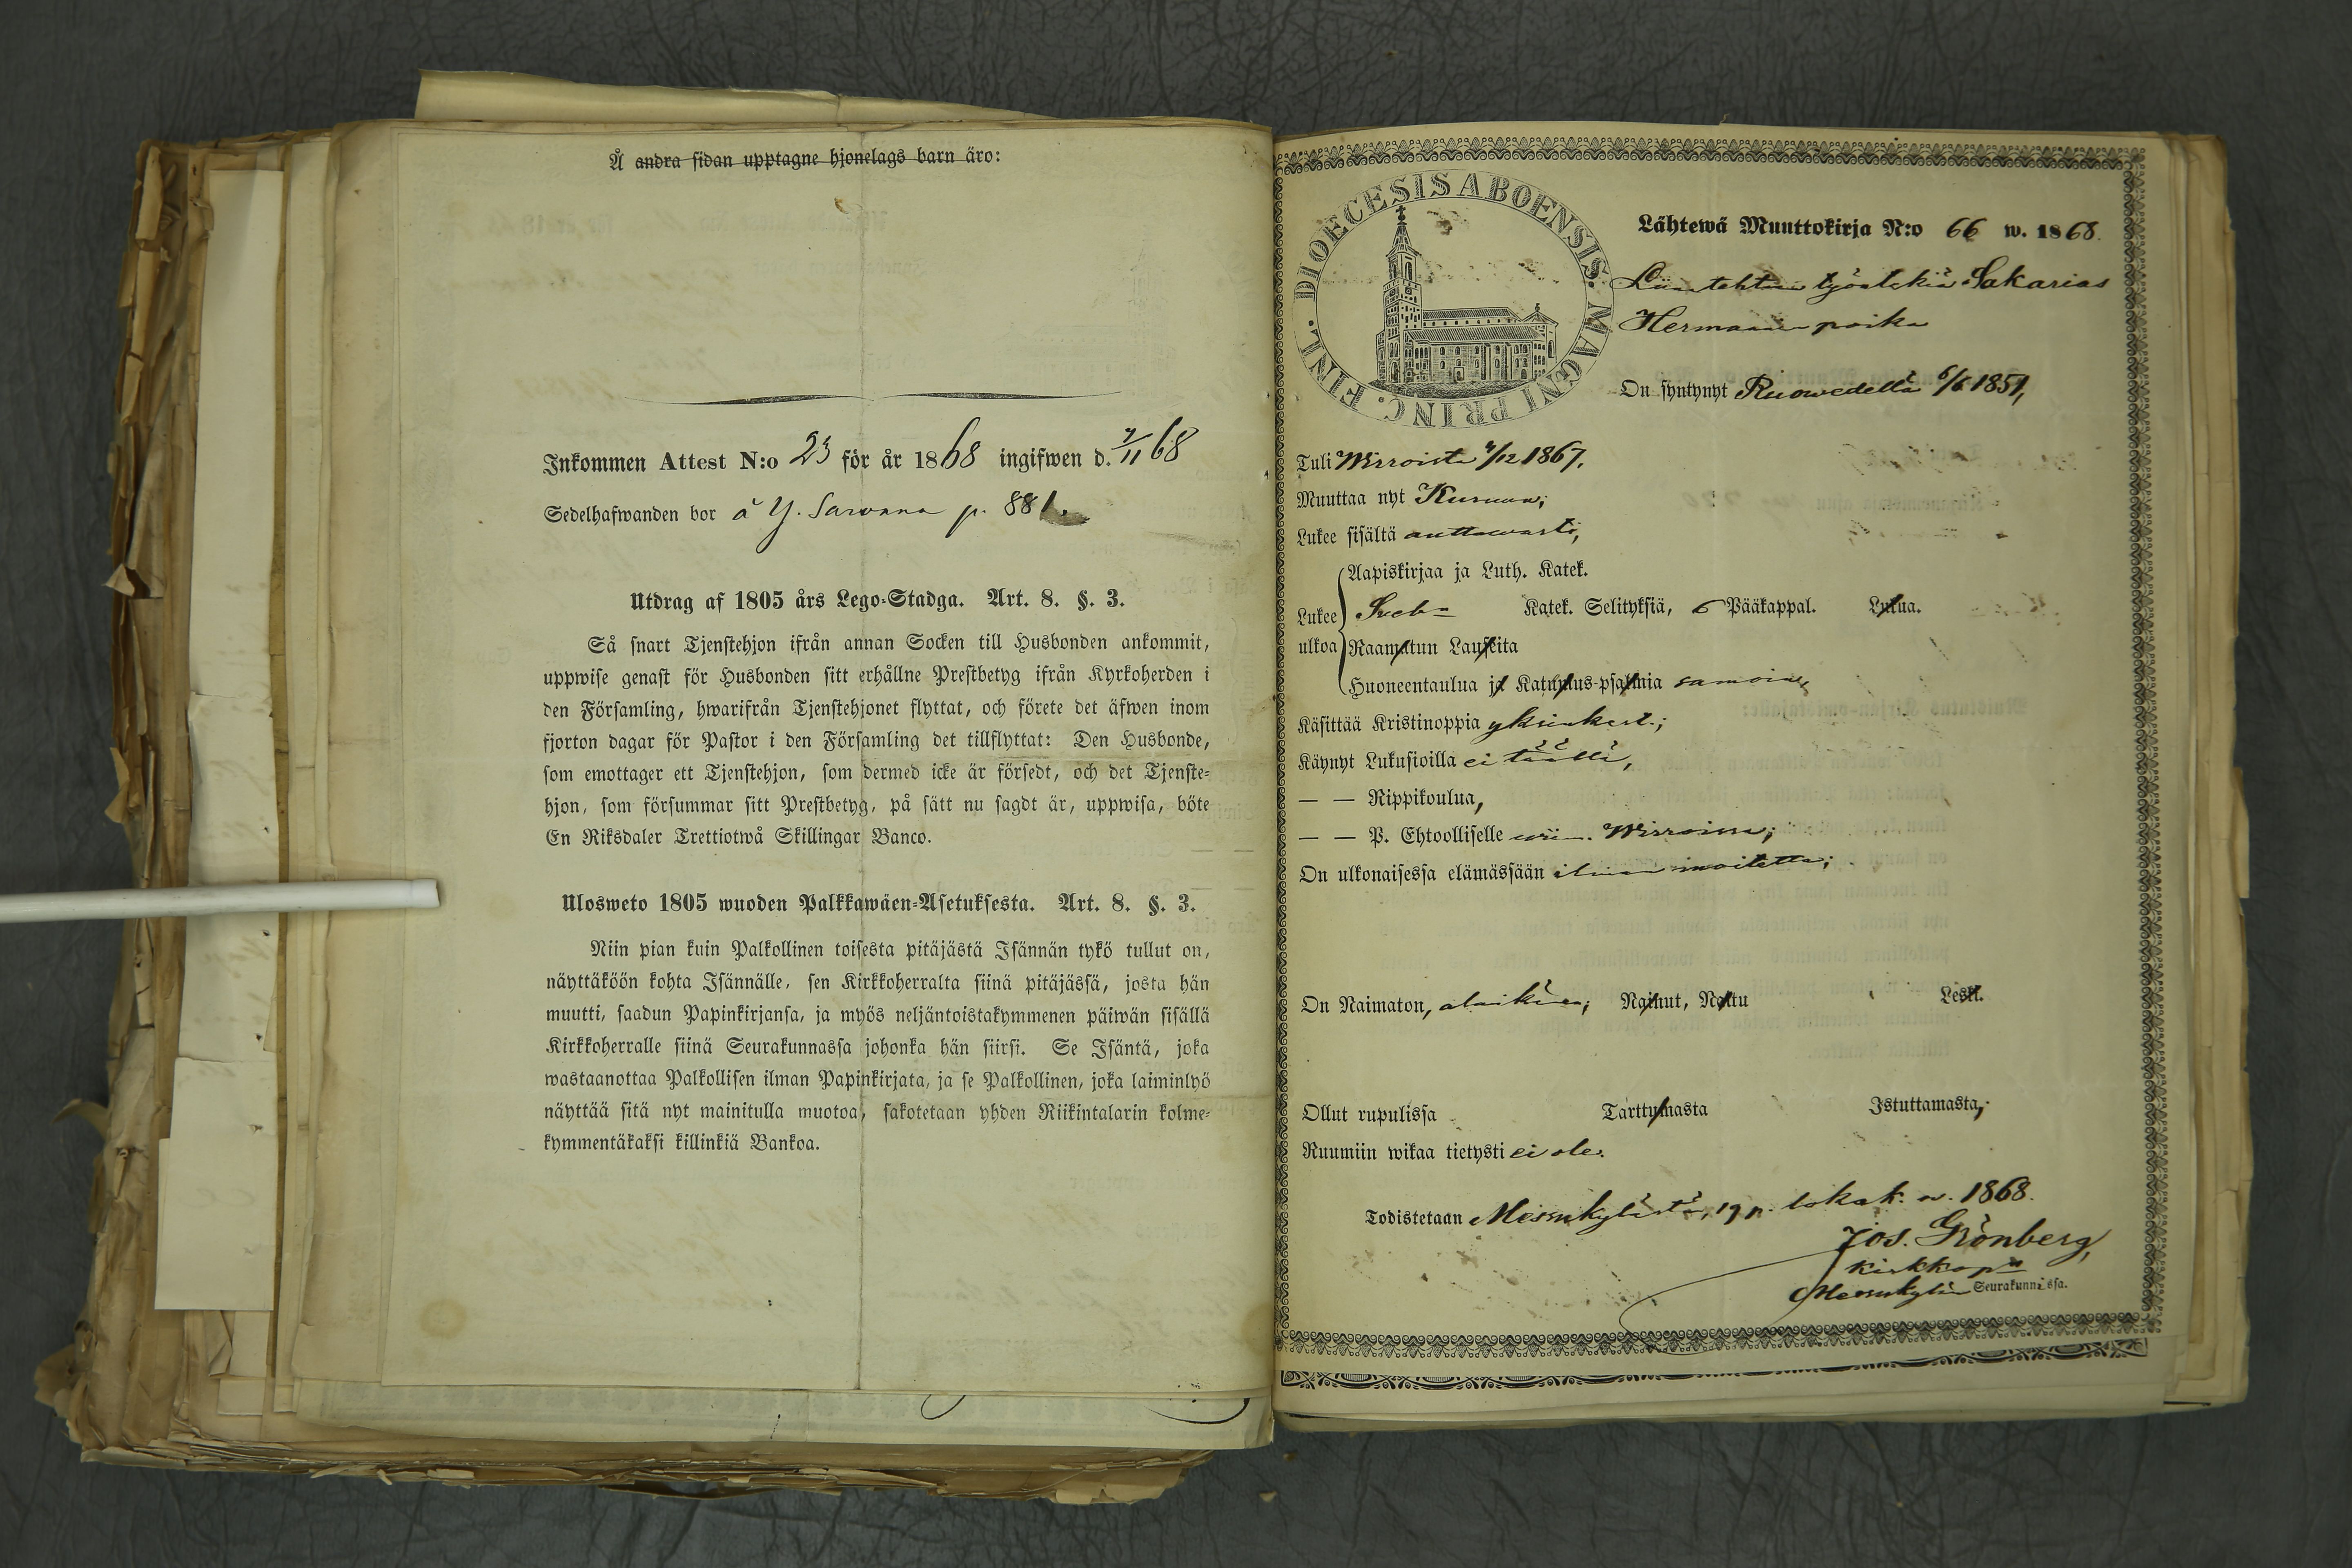 Å andra sidan upptagne hjonelags barn äro:
Inkommen Attest N:o 23 för år 1868 ingifwen d. 7/11 68
Sedelhafwanden bor å Y. Sarvana p. 881.
Utdrag af 1805 års Lego-Stadga. Art. 8. §. 3.
Så snart Tjenstehjon ifrån annan Socken till Husbonden ankommit,
uppwise genast för Husbonden sitt erhållne Prestbetyg ifrån Kyrkoherden i
den Församling, hwarifrån Tjenstehjonet flyttat, och förete det äfwen inom
fjorton dagar för Pastor i den Församling det tillflyttat: Den Husbonde,
som emottager ett Tjenstehjon, som dermed icke är försedt, och det Tjenste-
hjon, som försummar sitt Prestbetyg, på sätt nu sagdt är, uppwisa, böte
En Riksdaler Trettiotwå Skillingar Banco.
Ulosweto 1805 wuoden Palkkawäen-Asetuksesta. Art. 8. §. 3.
Niin pian kuin Palkollinen toisesta pitäjästä Isännän tykö tullut on,
näyttäköön kohta Isännälle, sen Kirkkoherralta siinä pitäjässä, josta hän
muutti, saadun Papinkirjansa, ja myös neljäntoistakymmenen päiwän sisällä
Kirkkoherralle siinä Seurakunnassa johonka hän siirsi. Se Isäntä, joka
wastaanottaa Palkollisen ilman Papinkirjata, ja se Palkollinen, joka laiminlyö
näyttää sitä nyt mainitulla muotoa, sakotetaan yhden Riikintalarin kolme-
kymmentäkaksi killinkiä Bankoa.
DIOECESIS ABOENSIS. MAGNI PRINC. FINL.
Lähtewä Muuttokirja N:o 66 w. 1868.
työntekiä Sakarias
Hermanninpoika
On syntynyt Ruowedellä 6/6 1851,
Tuli Wirroista 4/12 1867.
Muuttaa nyt Kuruun;
Lukee sisältä auttawasti;
Aapiskirjaa ja Luth. Katek.
Lukee Sveb= Katek. Selityksiä, 6 Pääkappal. Lukua.
ulkoa Raamatun Lauseita
Huoneentaulua ja Katumus-psalmia samoin,
Käsittää Kristinoppia yksinkert.;
Käynyt Lukusioilla ei täällä,
— — Rippikoulua,
— — P. Ehtoolliselle Wirroissa;
On ulkonaisessa elämässään ilman moitetta;
On Naimaton, alaikäinen; Nainut, Naitu Leski.
Ollut rupulissa Tarttumasta Istuttamasta,
Ruumiin wikaa tietysti ei ole.
Todistetaan Messukylästä, 19 p. lokak. w. 1868.
Jos. Grönberg,
kirkkop:n
Messukylän Seurakunnassa.